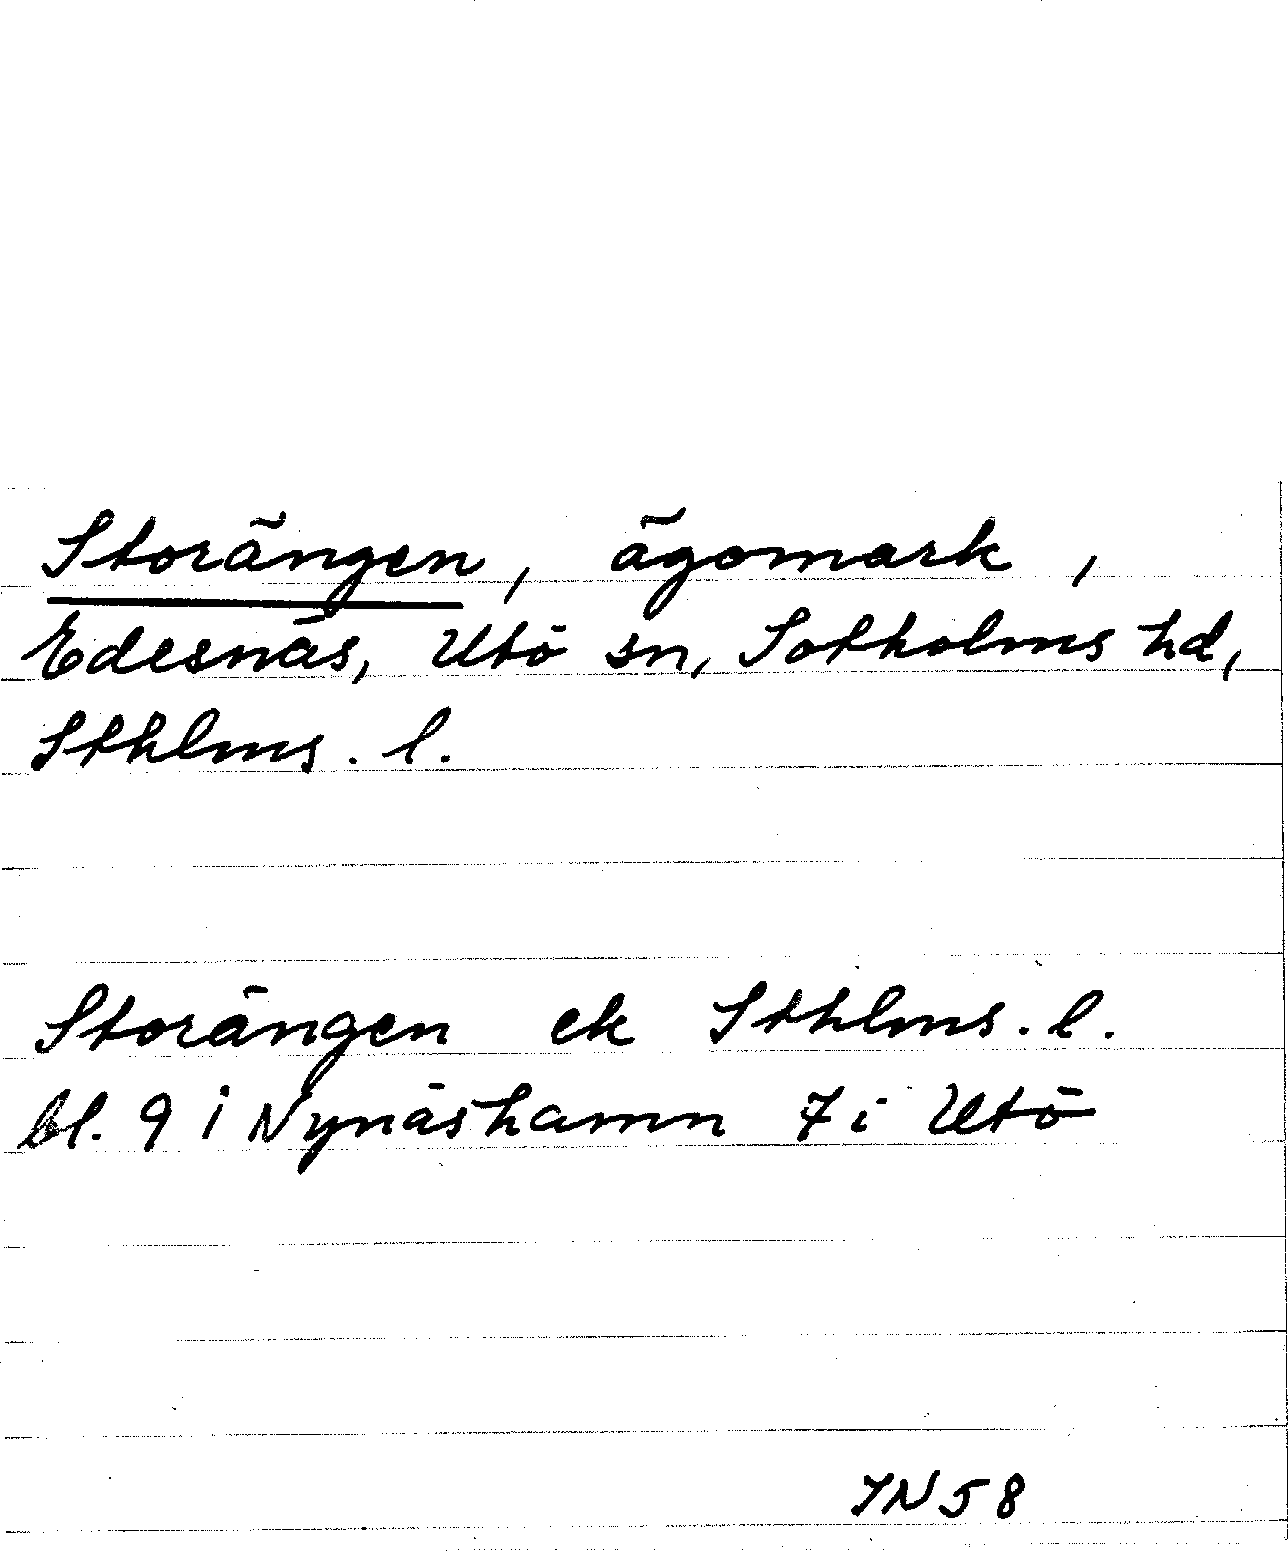 Storängen, ägomark,
Edesnäs, Utö sn, Sotholms hd,
Sthlms. l.
Storängen ek Sthlms. l.
bl. 9 i Nynäshamn 7 i Utö
YN 58